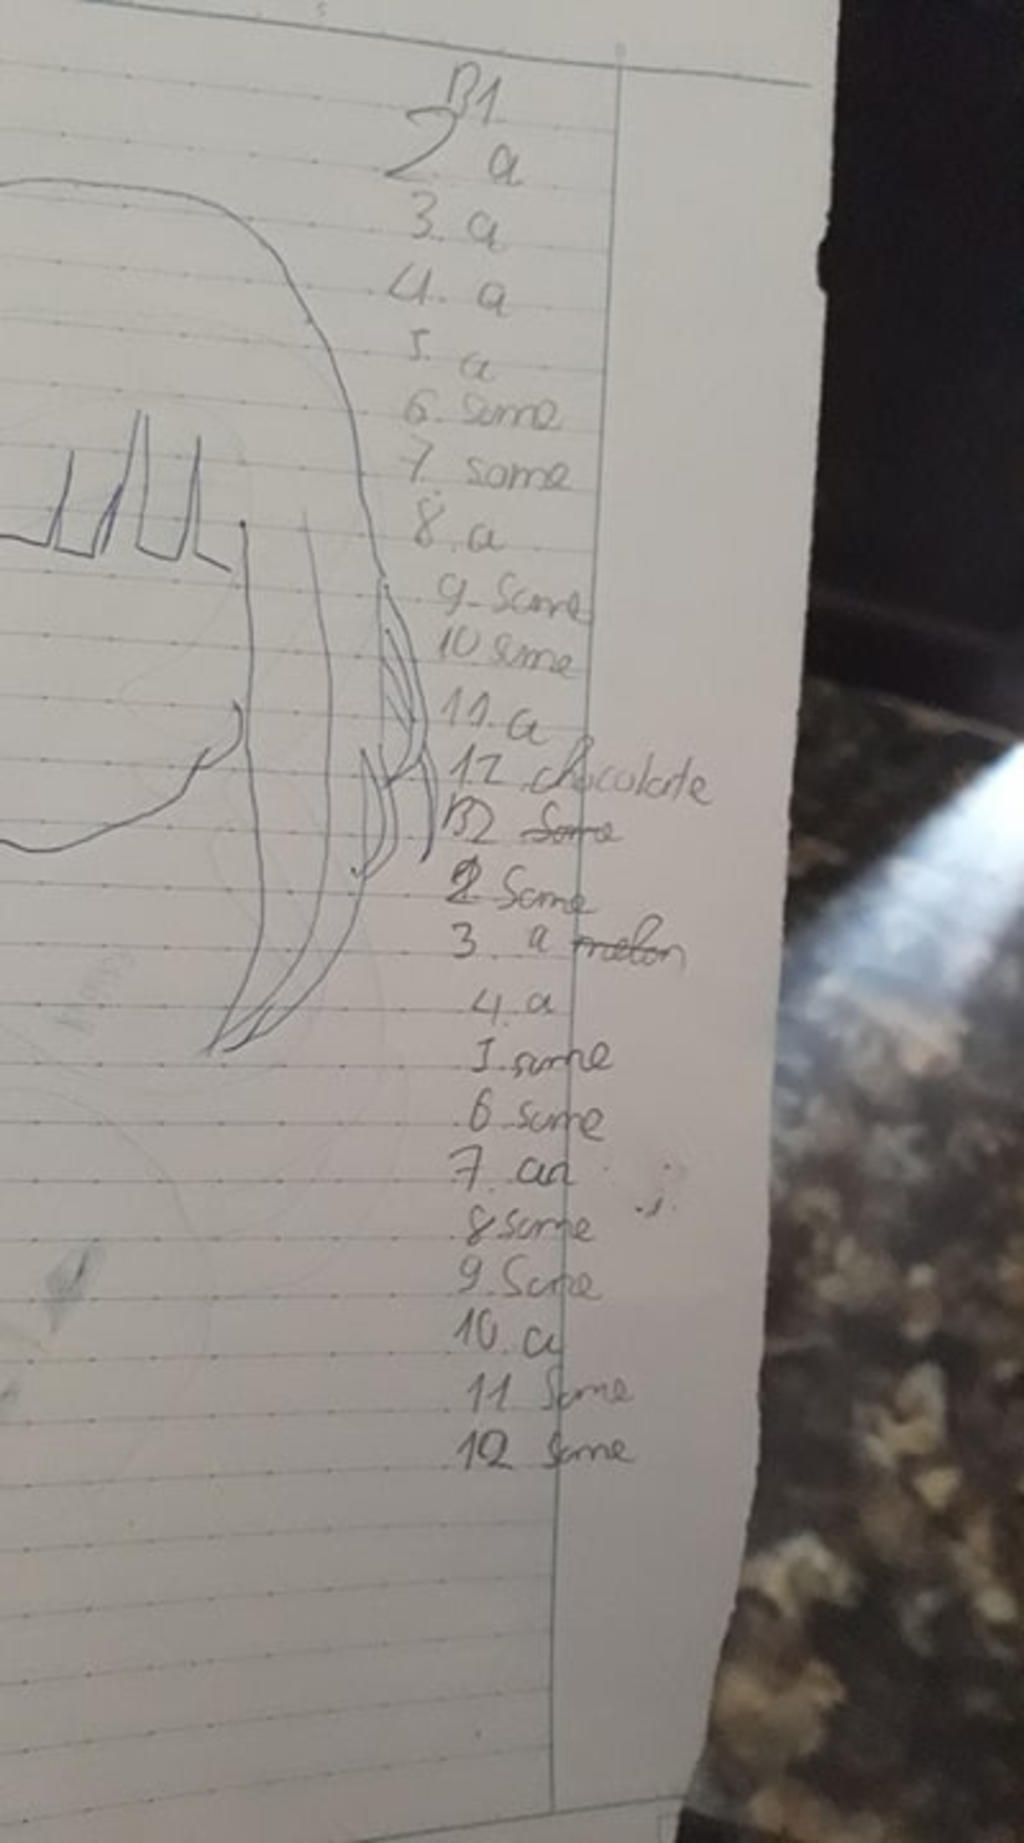 B1
2 a
3. a
4. a
5. a
6. some
7. some
8. a
9. Some
10 some
11. a
12. chocolate
B2 Some
2 Some
3. a melon
4. a
5. some
6 some
7. an
8 some
9. Some
10. a
11 Some
12 Some